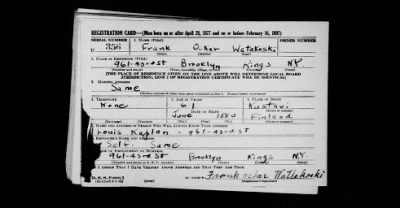 REGISTRATION CARD—(Men born on or after April 28, 1877 and on or before February 16, 1897)
SERIAL NUMBER 1. NAME (Print) ORDER NUMBER
U 356 Frank Oskar Watakoski
2. PLACE OF RESIDENCE (Print)
961-43rd St Brooklyn Kings N.Y.
[THE PLACE OF RESIDENCE GIVEN ON THE LINE ABOVE WILL DETERMINE LOCAL BOARD
JURISDICTION; LINE 2 OF REGISTRATION CERTIFICATE WILL BE IDENTICAL]
3. MAILING ADDRESS
Same
4. TELEPHONE 5. AGE IN YEARS 6. PLACE OF BIRTH
None 61 Kustavi
DATE OF BIRTH
June 1880 Finland
7. NAME AND ADDRESS OF PERSON WHO WILL ALWAYS KNOW YOUR ADDRESS
Louis Kaplan - 961-43rd St
8. EMPLOYER'S NAME AND ADDRESS
Self- Same
9. PLACE OF EMPLOYMENT OR BUSINESS
961-43rd St Brooklyn Kings N.Y.
I AFFIRM THAT I HAVE VERIFIED ABOVE ANSWERS AND THAT THEY ARE TRUE.
Frank oskar Watlakoski